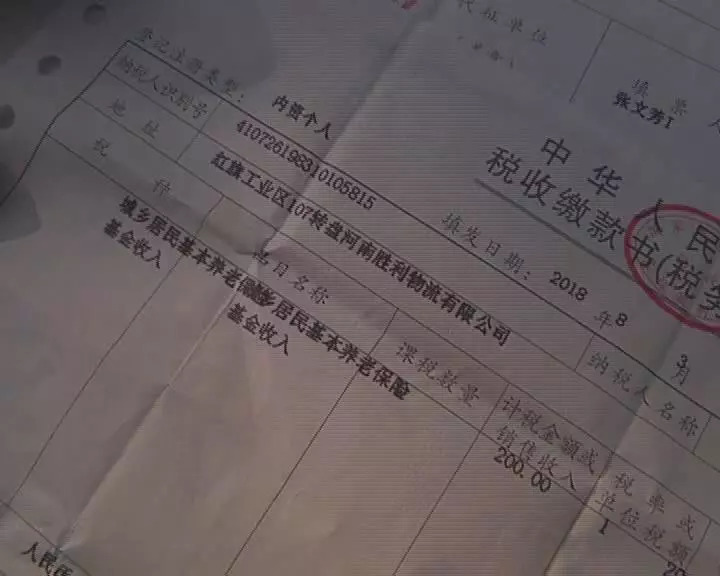 代征单位
填票人
张文芳1
中华人民
税收缴款书(税务
登记注册类型: 内资个人
填发日期: 2018 年 8 月 3
纳税人识别号 410726198310105815
纳税人名称
地址 红旗工业区107转盘河南胜利物流有限公司
税种 品目名称 课税数量 计税金额或销售收入 税率或单位税额
城乡居民基本养老保险 城乡居民基本养老保险 200.00 1
基金收入 基金收入
人民币